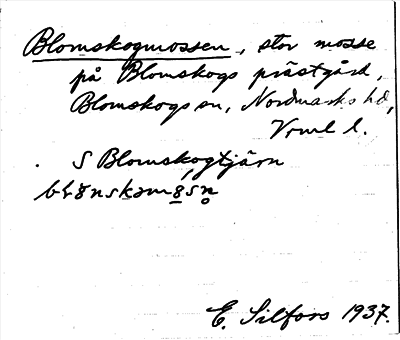 Blomskogmossen, stor mosse
på Blomskogs prästgård,
Blomskogs sn, Nordmarks hd,
Vrml l.
S Blomskogtjärn
E. Silfors 1937.